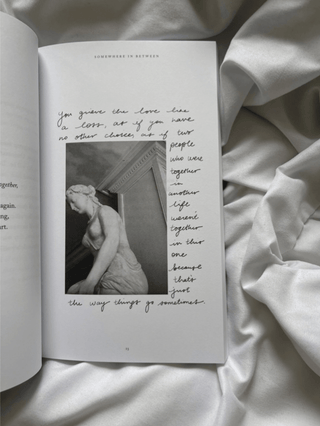 SOMEWHERE IN BETWEEN
you grieve the love like
a loss, as if you have
no other choice, as if two
people
who were
together
in
another
life
weren't
together
in this
one
because
that's
just
the way things go sometimes.
together,
again.